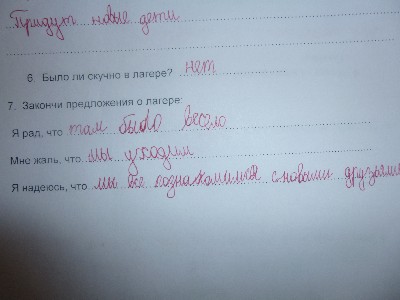 Придут новые дети
6. Было ли скучно в лагере? нет
7. Закончи предложения о лагере:
Я рад, что там было весело
Мне жаль, что мы уходим
Я надеюсь, что мы все познакомимся с новыми друзьями